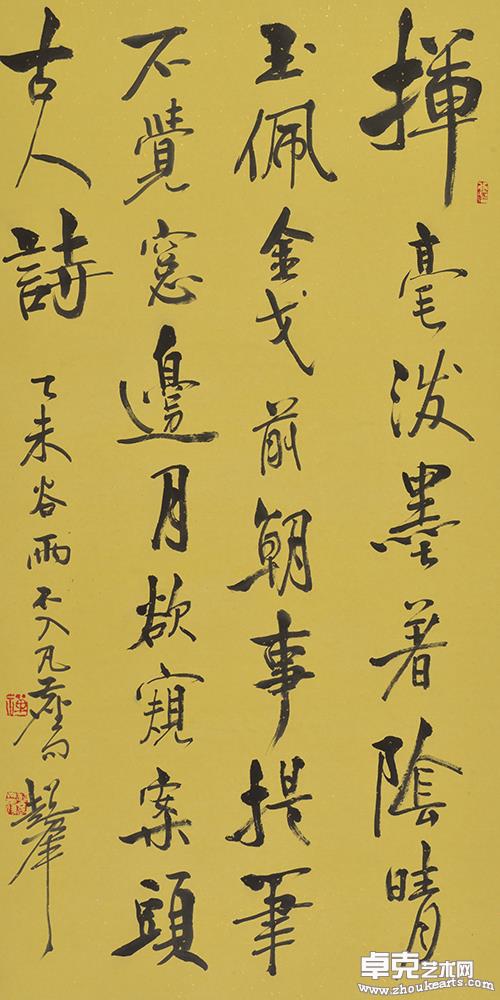 揮毫潑墨著陰晴
玉佩金戈前朝事提筆
不覺窓邊月欲窺案頭
古人詩
乙未谷雨不入凡
卓克艺术网
www.zhoukearts.com